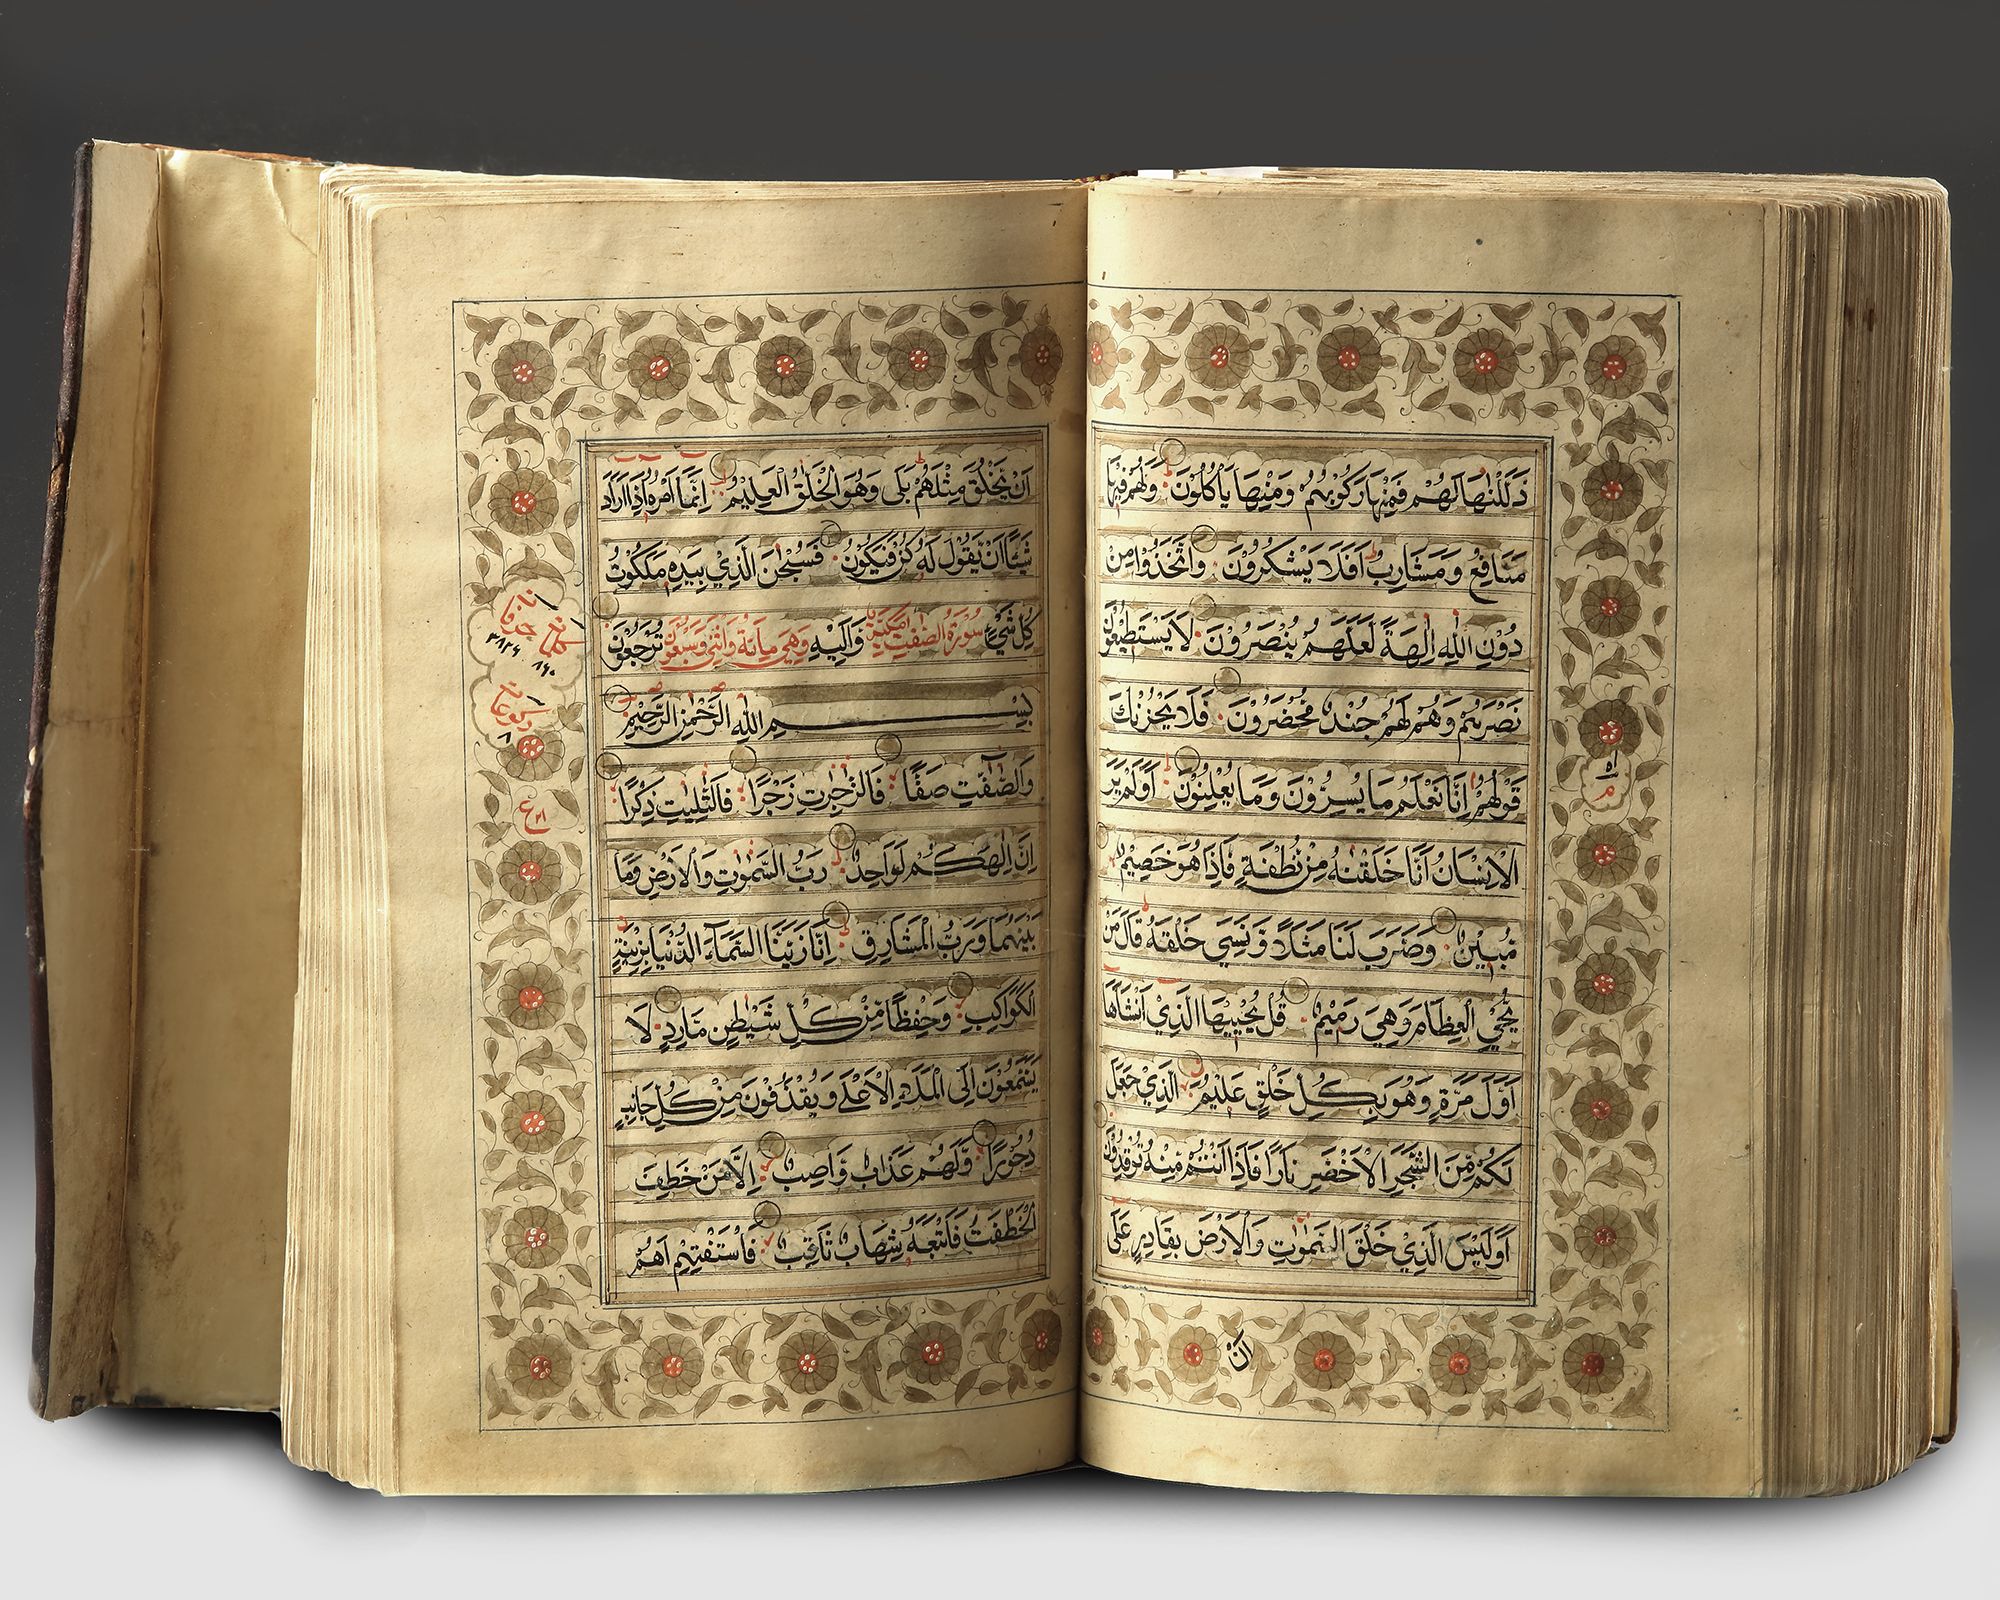 ذَلَّلْنٰهَا لَهُمْ فَمِنْهَا رَكُوْبُهُمْ وَمِنْهَا يَاْكُلُوْنَ وَلَهُمْ فِيْهَا
مَنَافِعُ وَمَشَارِبُ اَفَلَا يَشْكُرُوْنَ وَاتَّخَذُوْا مِنْ
دُوْنِ اللّٰهِ اٰلِهَةً لَعَلَّهُمْ يُنْصَرُوْنَ لَا يَسْتَطِيْعُوْنَ
نَصْرَهُمْ وَهُمْ لَهُمْ جُنْدٌ مُحْضَرُوْنَ فَلَا يَحْزُنْكَ
قَوْلُهُمْ اِنَّا نَعْلَمُ مَا يُسِرُّوْنَ وَمَا يُعْلِنُوْنَ اَوَلَمْ يَرَ
الْاِنْسَانُ اَنَّا خَلَقْنٰهُ مِنْ نُطْفَةٍ فَاِذَا هُوَ خَصِيْمٌ
مُبِيْنٌ وَضَرَبَ لَنَا مَثَلًا وَّنَسِيَ خَلْقَهٗ قَالَ مَنْ
يُّحْيِ الْعِظَامَ وَهِيَ رَمِيْمٌ قُلْ يُحْيِيْهَا الَّذِيْ اَنْشَاَهَا
اَوَّلَ مَرَّةٍ وَهُوَ بِكُلِّ خَلْقٍ عَلِيْمٌ الَّذِيْ جَعَلَ
لَكُمْ مِّنَ الشَّجَرِ الْاَخْضَرِ نَارًا فَاِذَا اَنْتُمْ مِنْهُ تُوْقِدُوْنَ
اَوَلَيْسَ الَّذِيْ خَلَقَ السَّمٰوٰتِ وَالْاَرْضَ بِقَادِرٍ عَلٰى
اَنْ
اَنْ يَّخْلُقَ مِثْلَهُمْ بَلٰى وَهُوَ الْخَلّٰقُ الْعَلِيْمُ اِنَّمَا اَمْرُهٗ اِذَا اَرَادَ
شَيْئًا اَنْ يَّقُوْلَ لَهٗ كُنْ فَيَكُوْنُ فَسُبْحٰنَ الَّذِيْ بِيَدِهٖ مَلَكُوْتُ
كُلِّ شَيْءٍ سُوْرَةُ الصّٰفّٰتِ مَكِّيَّةٌ وَّاِلَيْهِ وَهِيَ مِائَةٌ وَاثْنٰي وَسَبْعُوْنَ تُرْجَعُوْنَ
بِسْمِ اللّٰهِ الرَّحْمٰنِ الرَّحِيْمِ
وَالصّٰٓفّٰتِ صَفًّا فَالزّٰجِرٰتِ زَجْرًا فَالتّٰلِيٰتِ ذِكْرًا
اِنَّ اِلٰهَكُمْ لَوَاحِدٌ رَبُّ السَّمٰوٰتِ وَالْاَرْضِ وَمَا
بَيْنَهُمَا وَرَبُّ الْمَشَارِقِ اِنَّا زَيَّنَّا السَّمَآءَ الدُّنْيَا بِزِيْنَةِ
الْكَوَاكِبِ وَحِفْظًا مِّنْ كُلِّ شَيْطٰنٍ مَّارِدٍ لَا
يَسَّمَّعُوْنَ اِلَى الْمَلَاِ الْاَعْلٰى وَيُقْذَفُوْنَ مِنْ كُلِّ جَانِبٍ
دُحُوْرًا وَّلَهُمْ عَذَابٌ وَّاصِبٌ اِلَّا مَنْ خَطِفَ
الْخَطْفَةَ فَاَتْبَعَهٗ شِهَابٌ ثَاقِبٌ فَاسْتَفْتِهِمْ اَهُمْ